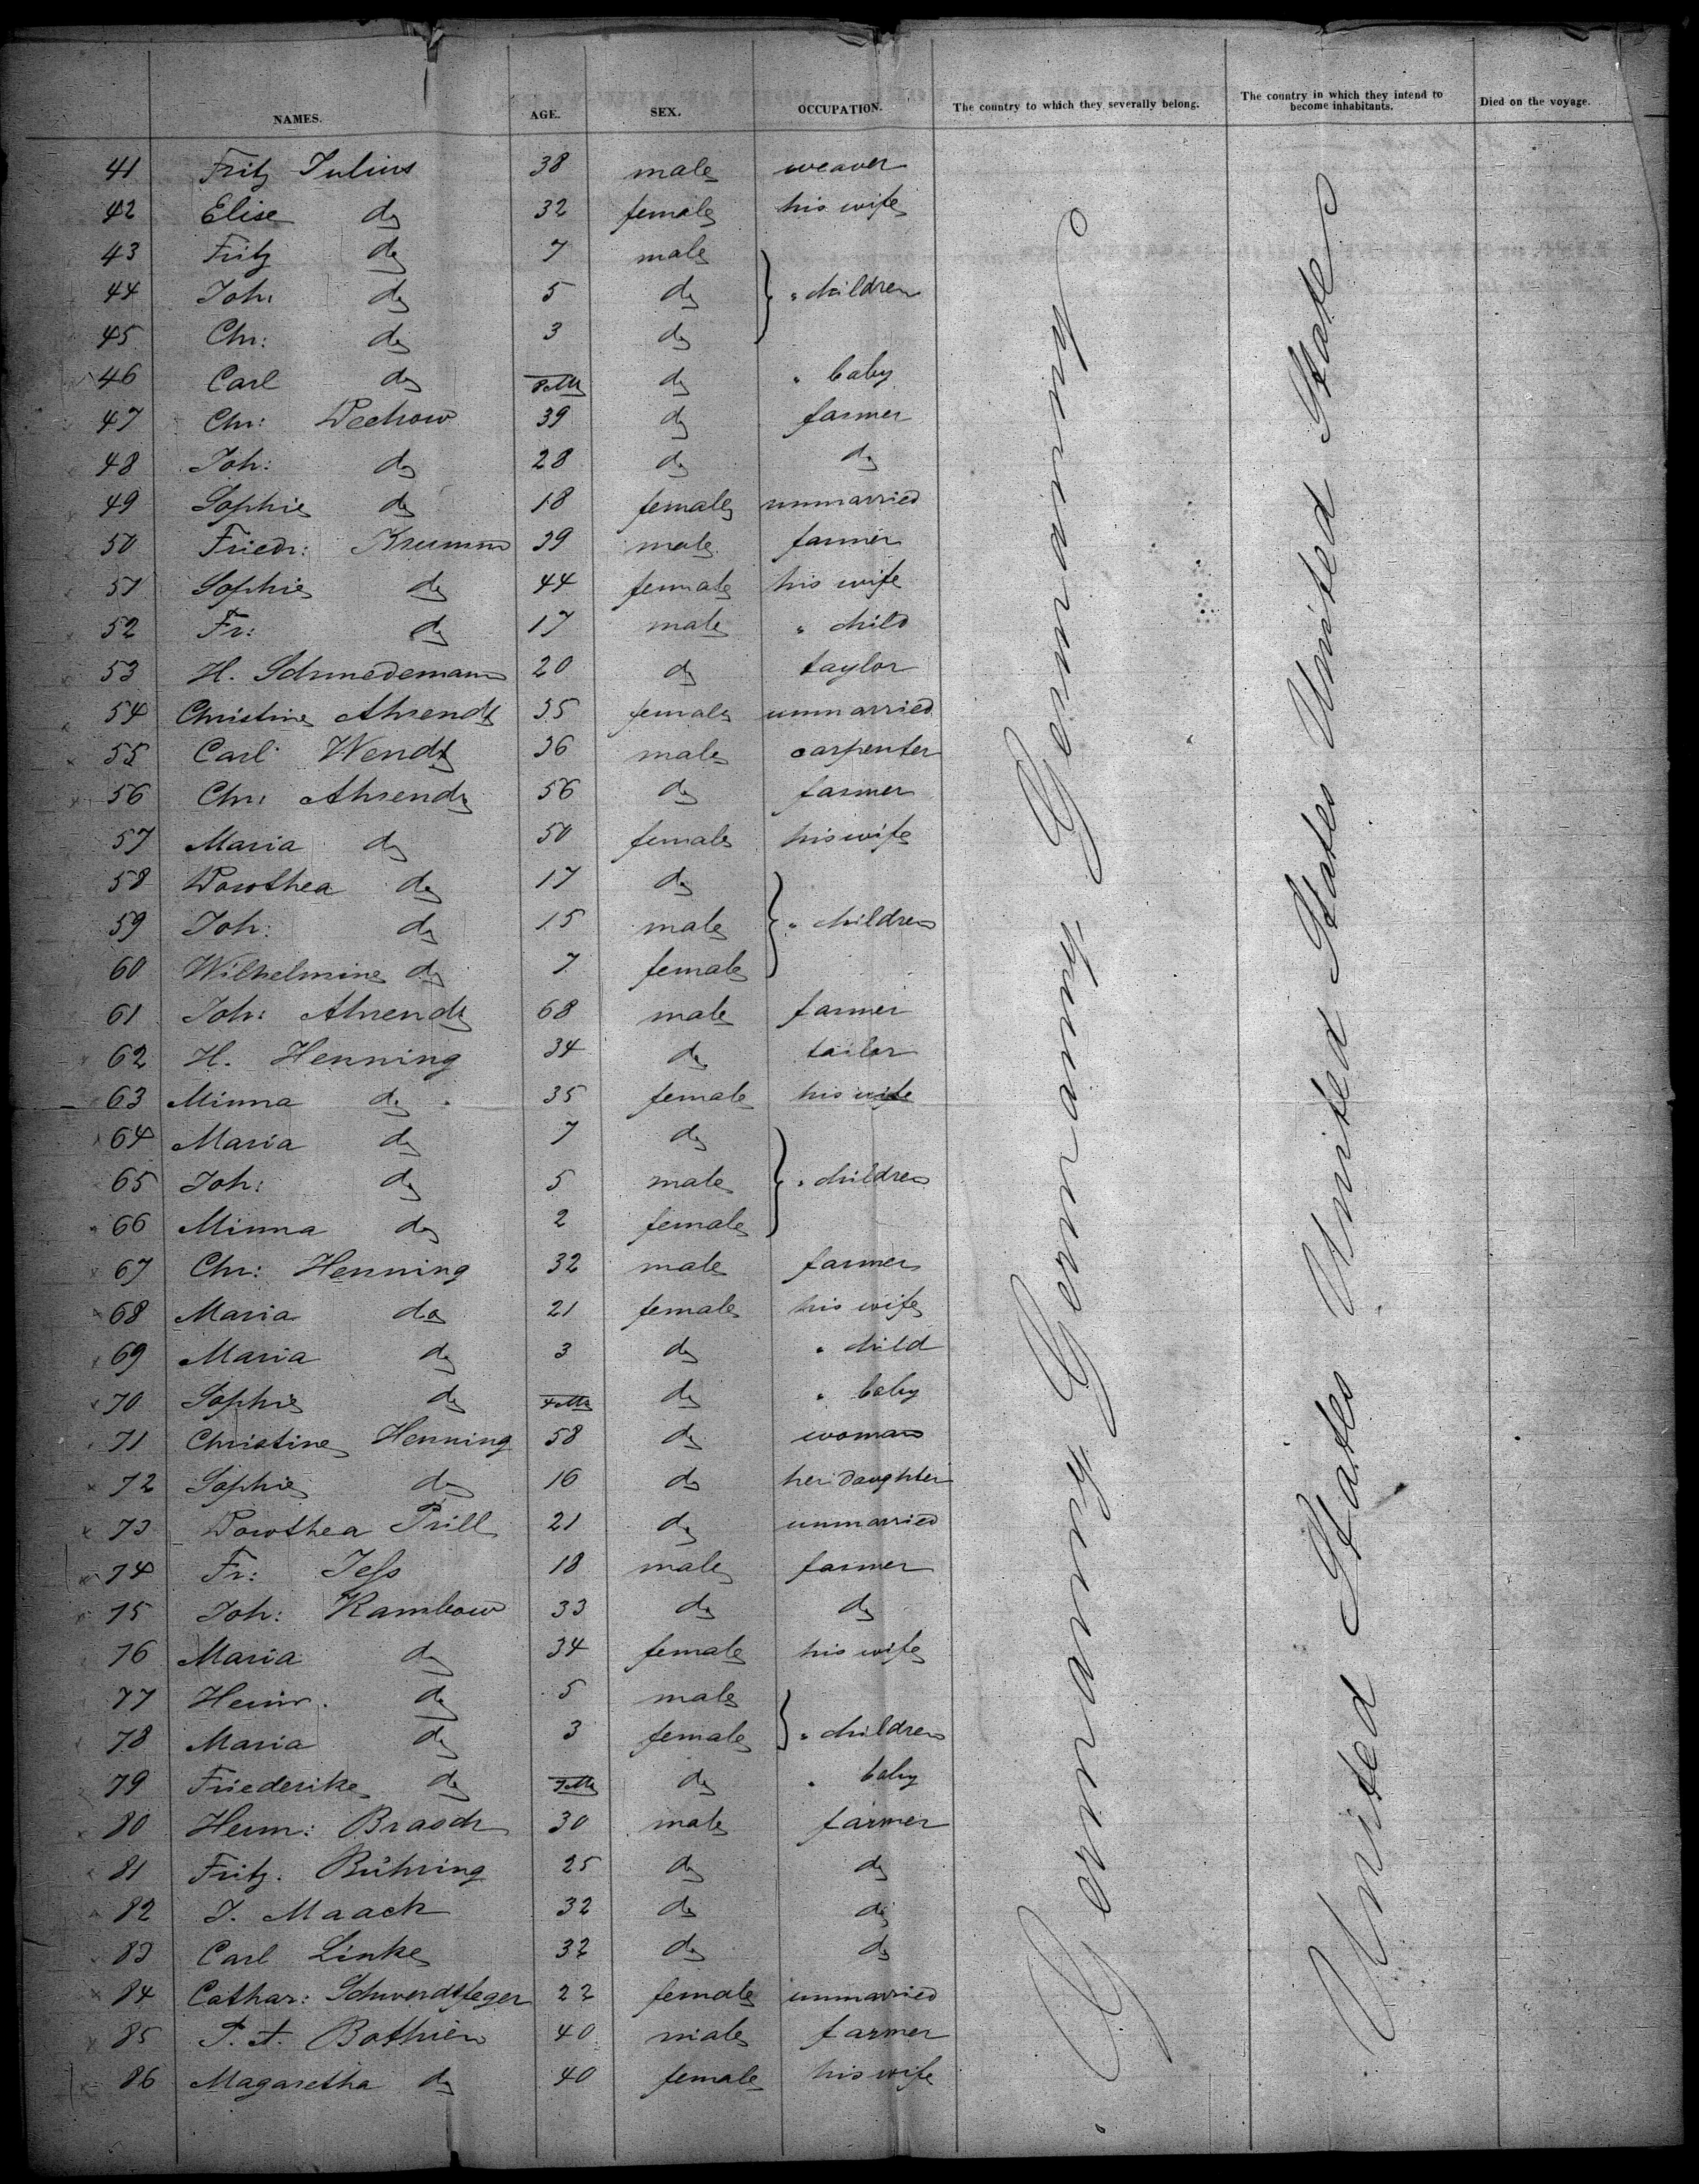 NAMES. AGE. SEX. OCCUPATION. The country to which they severally belong. The country in which they intend to become inhabitants. Died on the voyage.
41 Fritz Julius 38 male weaver
42 Elise do 32 female his wife
43 Fritz do 7 male
44 Joh: do 5 do " children
45 Chr: do 3 do
46 Carl do do " baby
47 Chr: Dechow 39 do farmer
48 Joh: do 28 do do
49 Sophie do 18 female unmarried
50 Friedr: Krumm 39 male farmer
51 Sophie do 44 female his wife
52 Fr: do 17 male " child
53 H. Schmedemann 20 do taylor
54 Christine Ahrendt 35 female unmarried
55 Carl Wendt 36 male carpenter
56 Chr: Ahrendt 56 do farmer
57 Maria do 50 female his wife
58 Dorothea do 17 do
59 Joh: do 15 male " children
60 Wilhelmine do 7 female
61 Joh: Ahrendt 68 male farmer
62 H. Henning 34 do tailor
63 Minna do 35 female his wife
64 Maria do 7 do
65 Joh: do 5 male " children
66 Minna do 2 female
67 Chr: Henning 32 male farmer
68 Maria do 21 female his wife
69 Maria do 3 do " child
70 Sophie do do " baby
71 Christine Henning 58 do woman
72 Sophie do 16 do her daughter
73 Dorothea Prill 21 do unmarried
74 Fr: Jess 18 male farmer
75 Joh: Rambow 33 do do
76 Maria do 34 female his wife
77 Heinr. do 5 male
78 Maria do 3 female " children
79 Friederike do do " baby
80 Herm: Brasch 30 male farmer
81 Fritz. Bühring 25 do do
82 J. Maack 32 do do
83 Carl Linke 32 do do
84 Cathar: Schwerdtfeger 22 female unmarried
85 P. A. Bothien 40 male farmer
86 Magaretha do 40 female his wife
Germany Germany Germany
United States United States United States